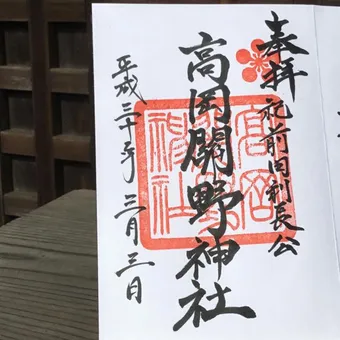 奉拝 祀前田利長公
高岡關野神社
平成三十年 三月三日
高岡
關野
神社